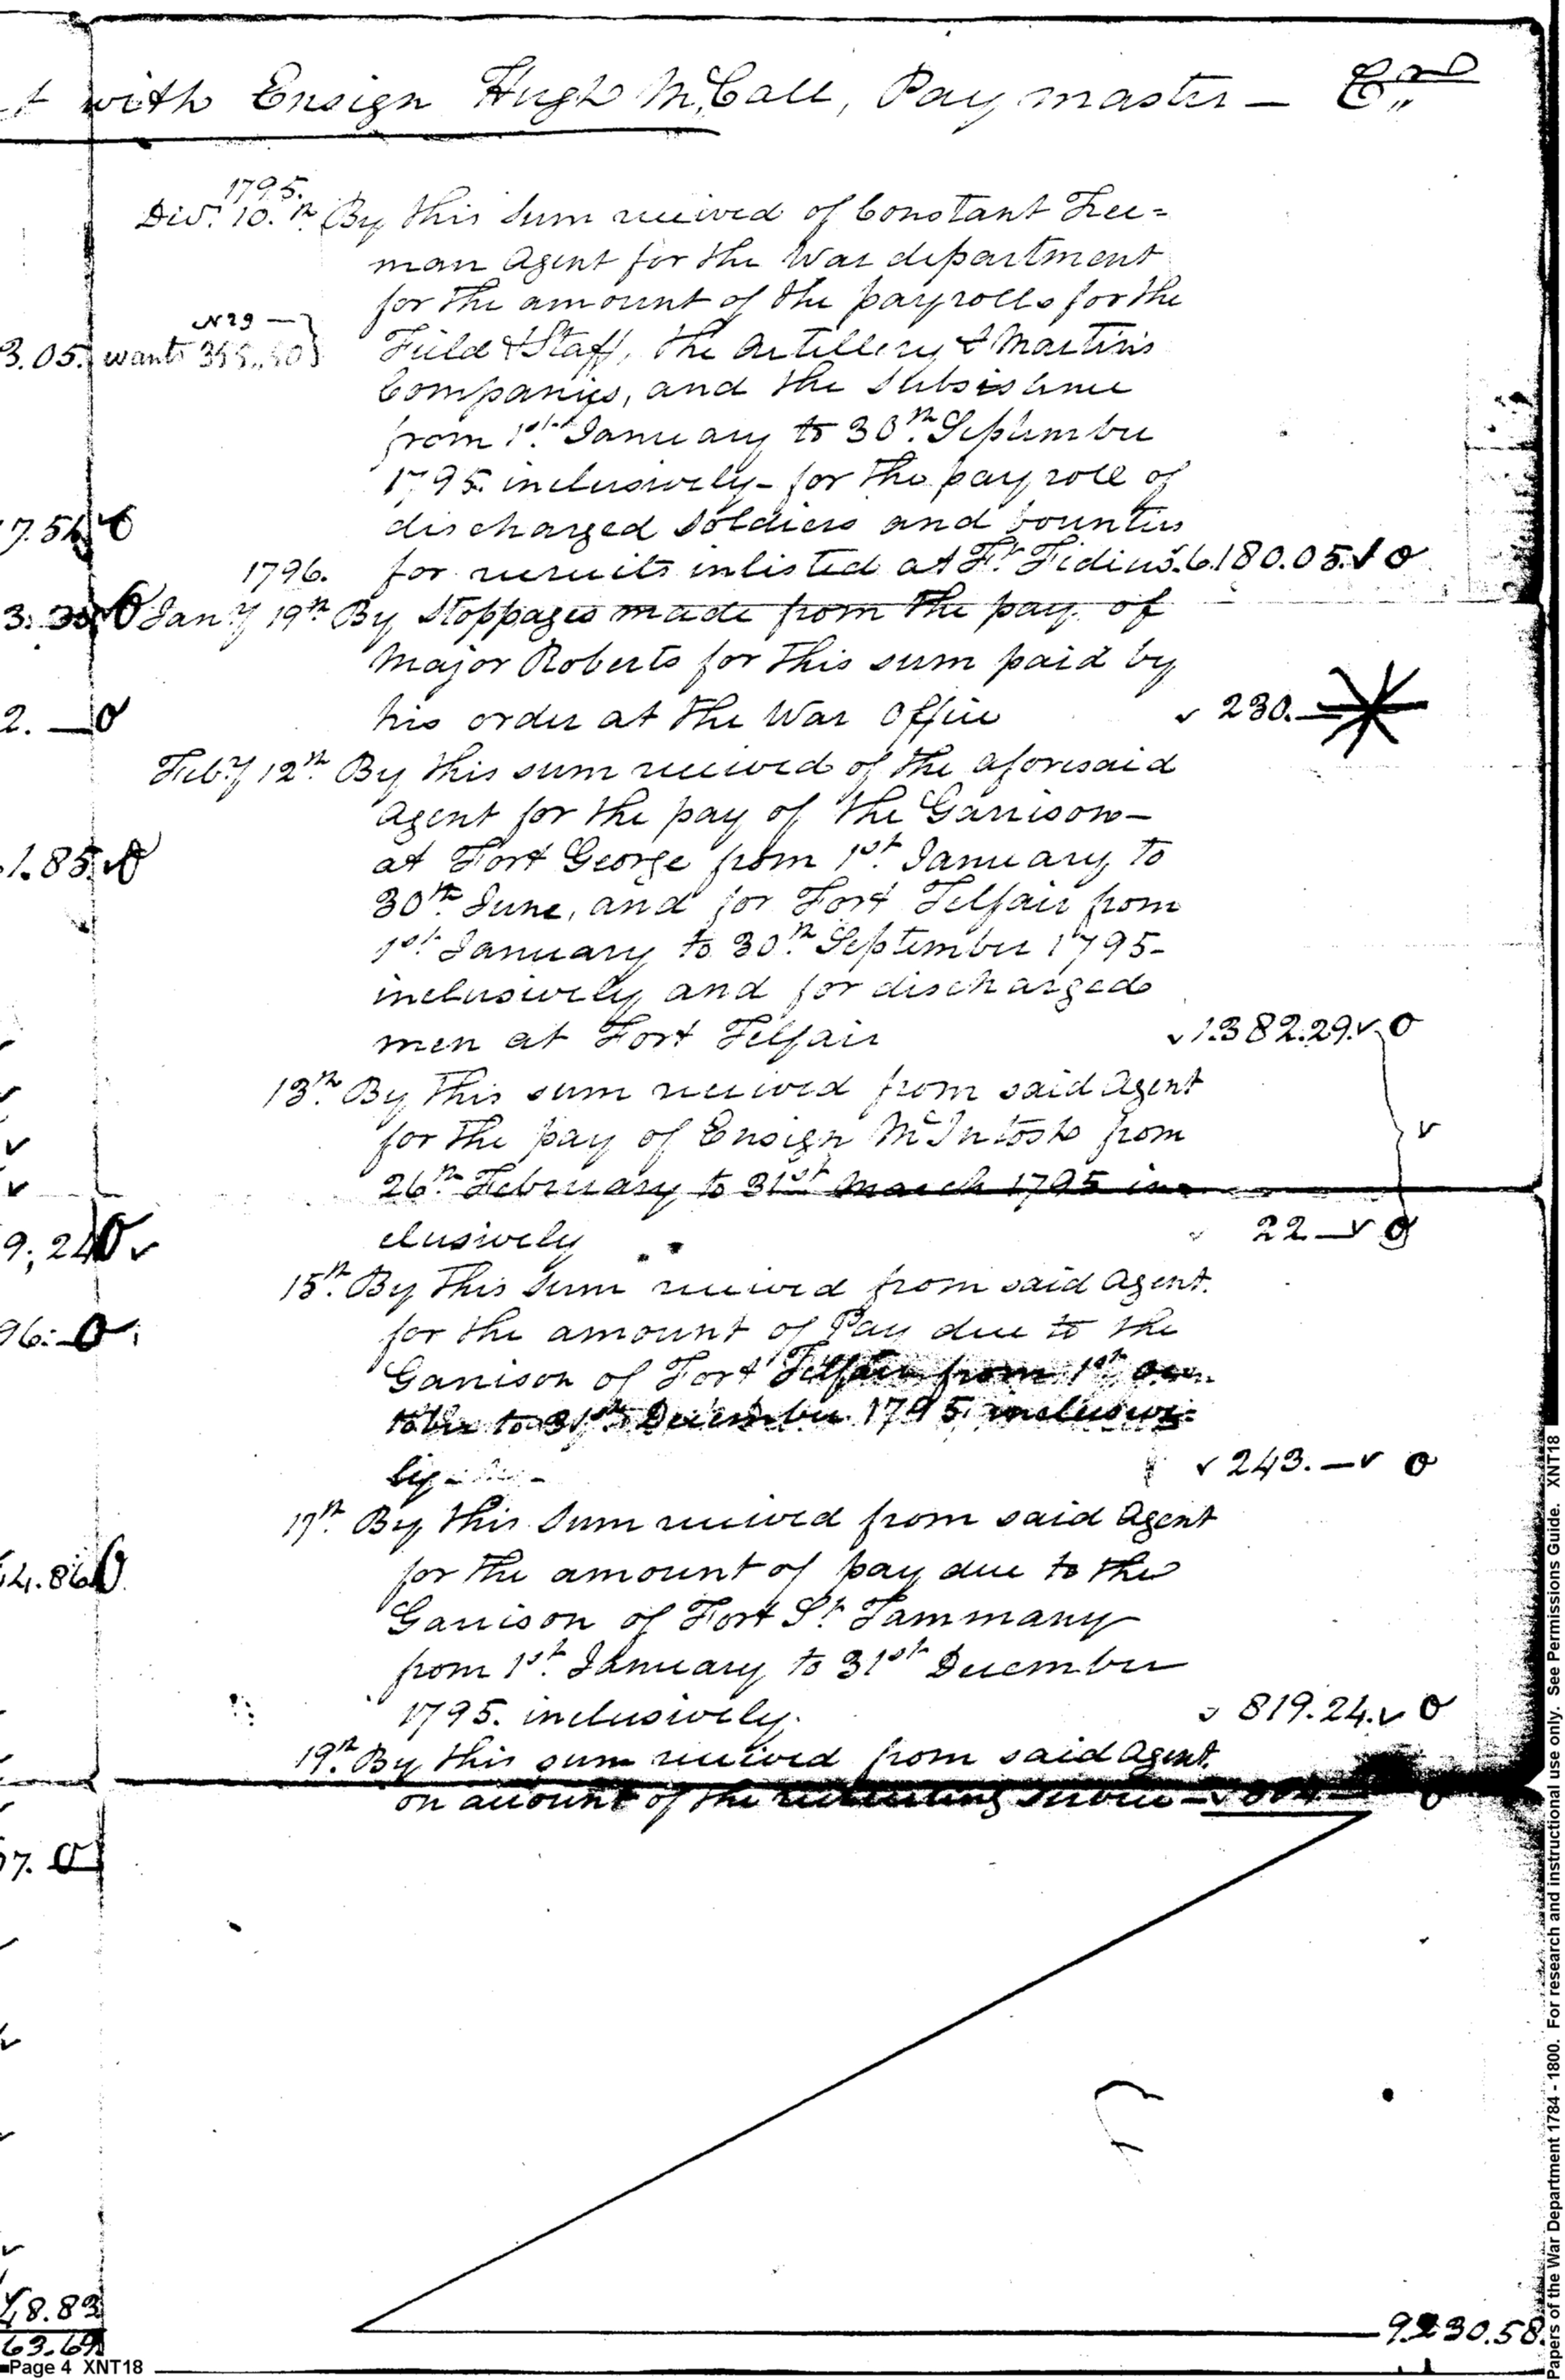 t with Ensign Hugh McCall, Paymaster — Cr.,,
1795.
Decr. 10.th By this sum received of Constant Free=
man Agent for the War department
for the amount of the payrolls for the
No 29 —
3.05. wants
Field & Staff, the Artillery & Martin's
Companies, and the Subsistence
from 1st. January to 30th. September
1795. inclusively - for the pay roll of
7.51
discharged Soldiers and bounties
1796. for recruits inlisted at Ft. Fidius. 6.180.05.
3. Jany 19th By Stoppages made from the pay of
Major Roberts for this sum paid by
2. —
his order at the War Office 230. —
Feby 12th. By this sum received of the aforesaid
Agent for the pay of the Garrison —
1.85
at Fort George from 1st. January to
30th. June, and for Fort Telfair from
1st. January to 30th. September 1795-
inclusively and for discharged
men at Fort Telfair 1.382.29.
13th. By this sum received from said Agent
for the pay of Ensign McIntosh from
26th. February to 31st March 1795 in-
9,24
clusively 22 —
15th. By this sum received from said Agent.
96.
for the amount of Pay due to the
Garrison of Fort Telfair from 1st Oc-
tober to 31st. December 1795 inclusive-
ly — 243. —
17th. By this sum received from said Agent
for the amount of pay due to the
4.86
Garrison of Fort St. Tammany
from 1st. January to 31st December
1795. inclusively. 819.24.
19th. By this sum received from said Agent.
on account of the recruiting service —
7.
48.83
63.69
9230.58.
Page 4 XNT18
Papers of the War Department 1784 - 1800. For research and instructional use only. See Permissions Guide. XNT18